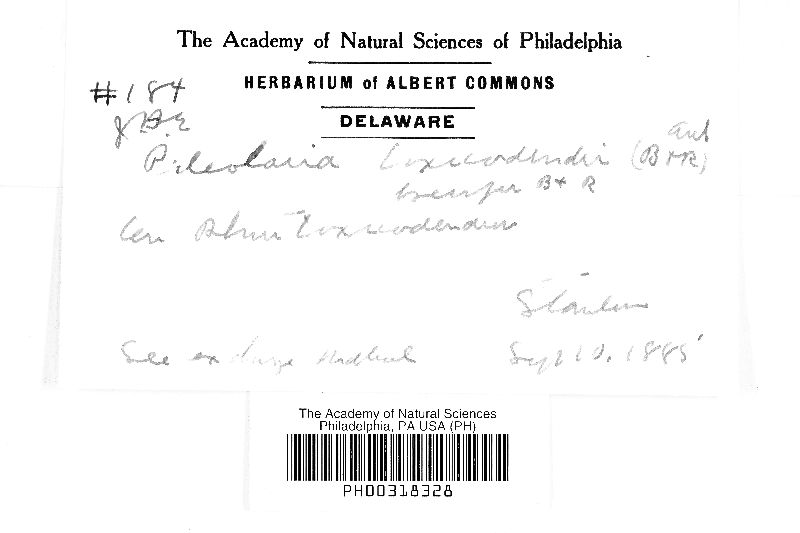 The Academy of Natural Sciences of Philadelphia
HERBARIUM of ALBERT COMMONS
DELAWARE
#184
Pileolaria toxicodendri (B+R)
B+R
on Rhus Toxicodendron
Stanton
See
Sept 10, 1885
The Academy of Natural Sciences
Philadelphia, PA USA (PH)
PH00318328